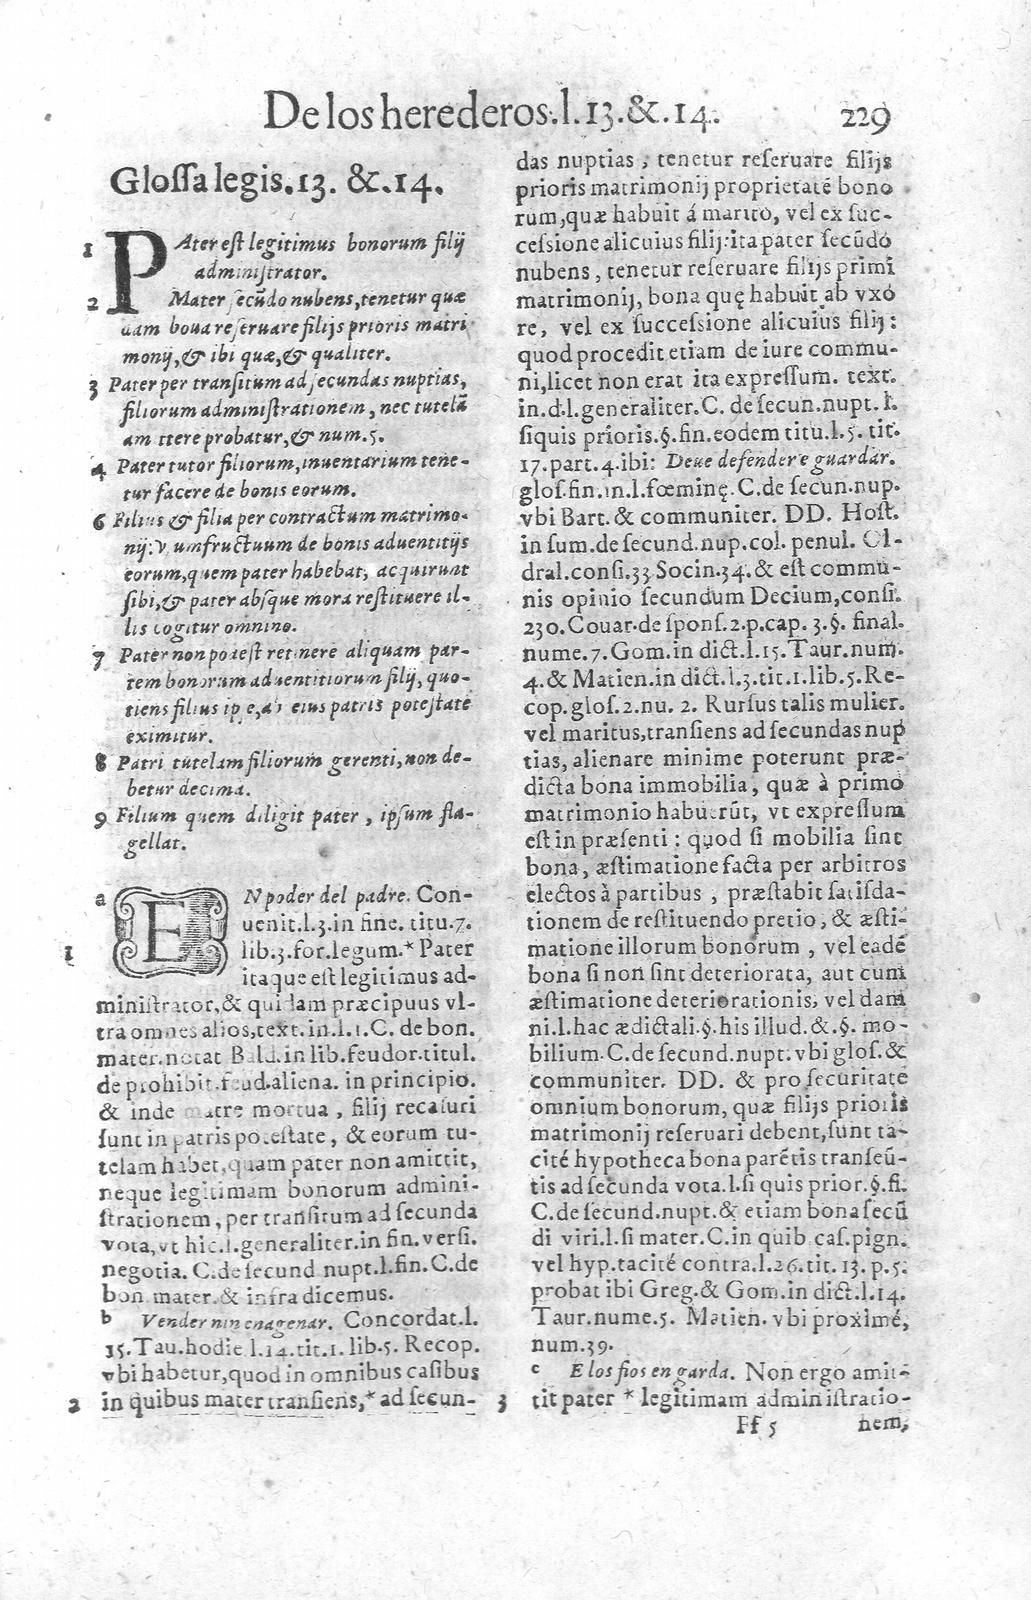 De los herederos.l.13.&.14. 229
Glossa legis.13. &.14.
1 PAter est legitimus bonorum filij
administrator.
2 Mater secũdo nubens,tenetur quæ
dam bona reseruare filijs prioris matri
monij,& ibi quæ,& qualiter.
3 Pater per transitum ad secundas nuptias,
filiorum administrationem, nec tutelã
amittere probatur,& num.5.
4 Pater tutor filiorum,inuentarium tene-
tur facere de bonis eorum.
6 Filius & filia per contractum matrimo-
nij: vsumfructuum de bonis aduentitijs
eorum,quem pater habebat, acquirunt
sibi,& pater absque mora restituere il-
lis cogitur omnino.
7 Pater non potest retinere aliquam par-
tem bonorum aduentitiorum filij, quo-
tiens filius ipse,à eius patris potestate
eximitur.
8 Patri tutelam filiorum gerenti,non de-
betur decima.
9 Filium quem diligit pater, ipsum fla-
gellat.
a EN poder del padre. Con-
uenit.l.3.in fine. titu.7.
1 lib.3.for.legum.* Pater
itaque est legitimus ad-
ministrator,& quidam præcipuus vl-
tra omnes alios,text.in.l.1.C. de bon.
mater.notat Bald.in lib.feudor.titul.
de prohibit.feud.aliena. in principio.
& inde matre mortua, filij recasuri
sunt in patris potestate, & eorum tu-
telam habet,quam pater non amittit,
neque legitimam bonorum admini-
strationem, per transitum ad secunda
vota,vt hic.l.generaliter.in fin.versi.
negotia. C.de secund nupt.l.fin.C.de
bon mater.& infra dicemus.
b Vender nin enagenar. Concordat.l.
15.Tau.hodie l.14.tit.1.lib.5. Recop.
vbi habetur,quod in omnibus casibus
2 in quibus mater transiens,* ad secun-
das nuptias, tenetur reseruare filijs
prioris matrimonij proprietatẽ bono
rum,quæ habuit á marito, vel ex suc-
cessione alicuius filij:ita pater secũdo
nubens, tenetur reseruare filijs primi
matrimonij, bona quę habuit ab vxo
re, vel ex successione alicuius filij:
quod procedit etiam de iure commu-
ni,licet non erat ita expressum. text.
in.d.l.generaliter.C. de secun.nupt.l.
siquis prioris.§.fin.eodem titu.l.5. tit.
17.part.4.ibi: Deue defender e guardar.
glos.fin.in.l.fœminę.C.de secun.nup.
vbi Bart.& communiter. DD. Host.
in sum.de secund.nup.col. penul. Ol-
dral.consi.33 Socin.34.& est commu-
nis opinio secundum Decium,consi.
230.Couar.de spons.2.p.cap. 3.§. final.
nume.7.Gom.in dict.l.15.Taur.num.
4.& Matien.in dict.l.3.tit.1.lib.5.Re-
cop.glos.2.nu. 2. Rursus talis mulier.
vel maritus,transiens ad secundas nup
tias, alienare minime poterunt præ-
dicta bona immobilia, quæ à primo
matrimonio habuerũt, vt expressum
est in præsenti: quod si mobilia sint
bona, æstimatione facta per arbitros
electos à partibus, præstabit satisda-
tionem de restituendo pretio, & æsti-
matione illorum bonorum, vel eadẽ
bona si non sint deteriorata, aut cum
æstimatione deteriorationis, vel dam
ni.l.hac ædictali.§.his illud.&.§. mo-
bilium.C.de secund.nupt.vbi glos.&
communiter. DD. & pro securitate
omnium bonorum, quæ filijs prioris
matrimonij reseruari debent,sunt ta-
citè hypotheca bona parẽtis transeũ-
tis ad secunda vota.l.si quis prior.§.fi.
C.de secund.nupt.& etiam bona secũ
di viri.l.si mater.C.in quib cas.pign.
vel hyp.tacité contra.l.26.tit.13.p.5.
probat ibi Greg.& Gom.in dict.l.14.
Taur.nume.5. Matien. vbi proximé,
num.39.
c E los sios en garda. Non ergo amit-
3 tit pater * legitimam administratio-
Ff 5 nem,